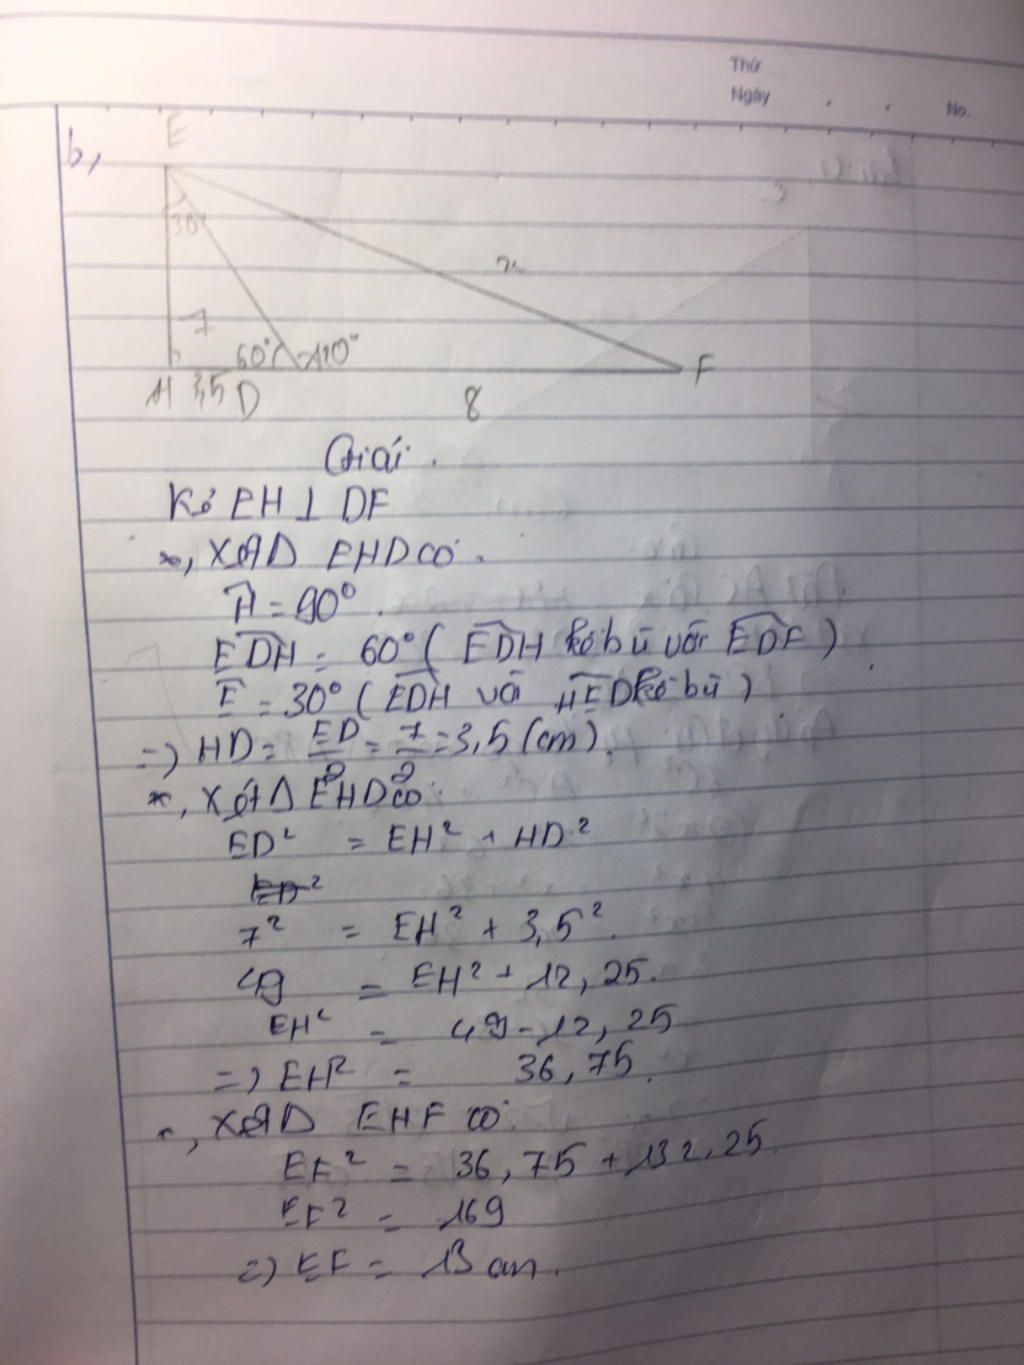 Thứ
Ngày . . No.
b,
E
30°
x
7
60° 120°
F
H 3,5 D
8
Giải.
Kẻ EH ⊥ DF
*, Xét Δ EHD có:
Ĥ = 90°.
EDH = 60° ( EDH kề bù với EDF )
E = 30° ( EDH và HED kề bù )
=> HD = ED/2 = 7/2 = 3,5 (cm).
*, Xét Δ EHD có:
ED² = EH² + HD²
ED²
7² = EH² + 3,5².
49 = EH² + 12,25.
EH² = 49 - 12,25
=> EH² = 36,75.
*, Xét Δ EHF có:
EF² = 36,75 + 132,25
EF² = 169
=> EF = 13 cm.